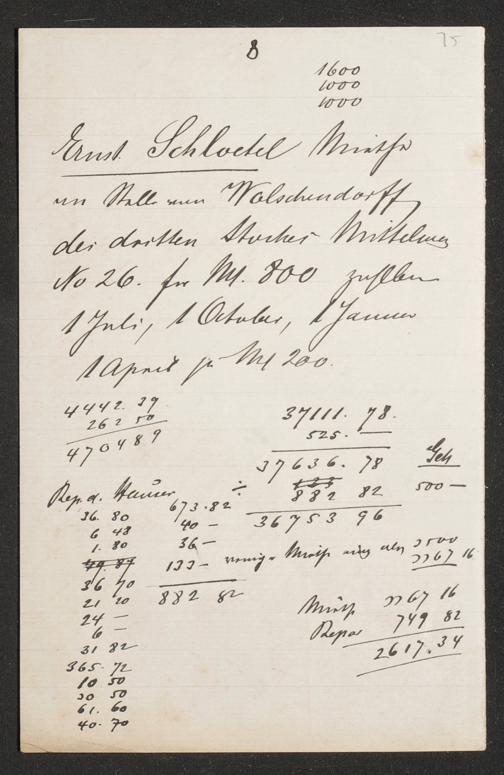 8
75
1600
1000
1000
Ernst Schloetel Miethe
an Stelle von Wolschendorff
des dritten Stockes Mittelweg
No 26. für M. 800
1 Juli, 1 October, 1 Januar
1 April je M 200.
4442. 39
262 50
470489
37111. 78.
525. —
37636. 78
÷ 882 82
36753 96
500 —
Rep. a. Häuser
36. 80
6 48
1. 80
36 70
21 20
24 —
6 —
31 82
365. 72
10 50
30 50
61. 60
40. 70
673. 82
40 —
36 —
133 —
882 82
wenige Miethe
3500
3367 16
Miethe 3367 16
Repar 749 82
2617. 34